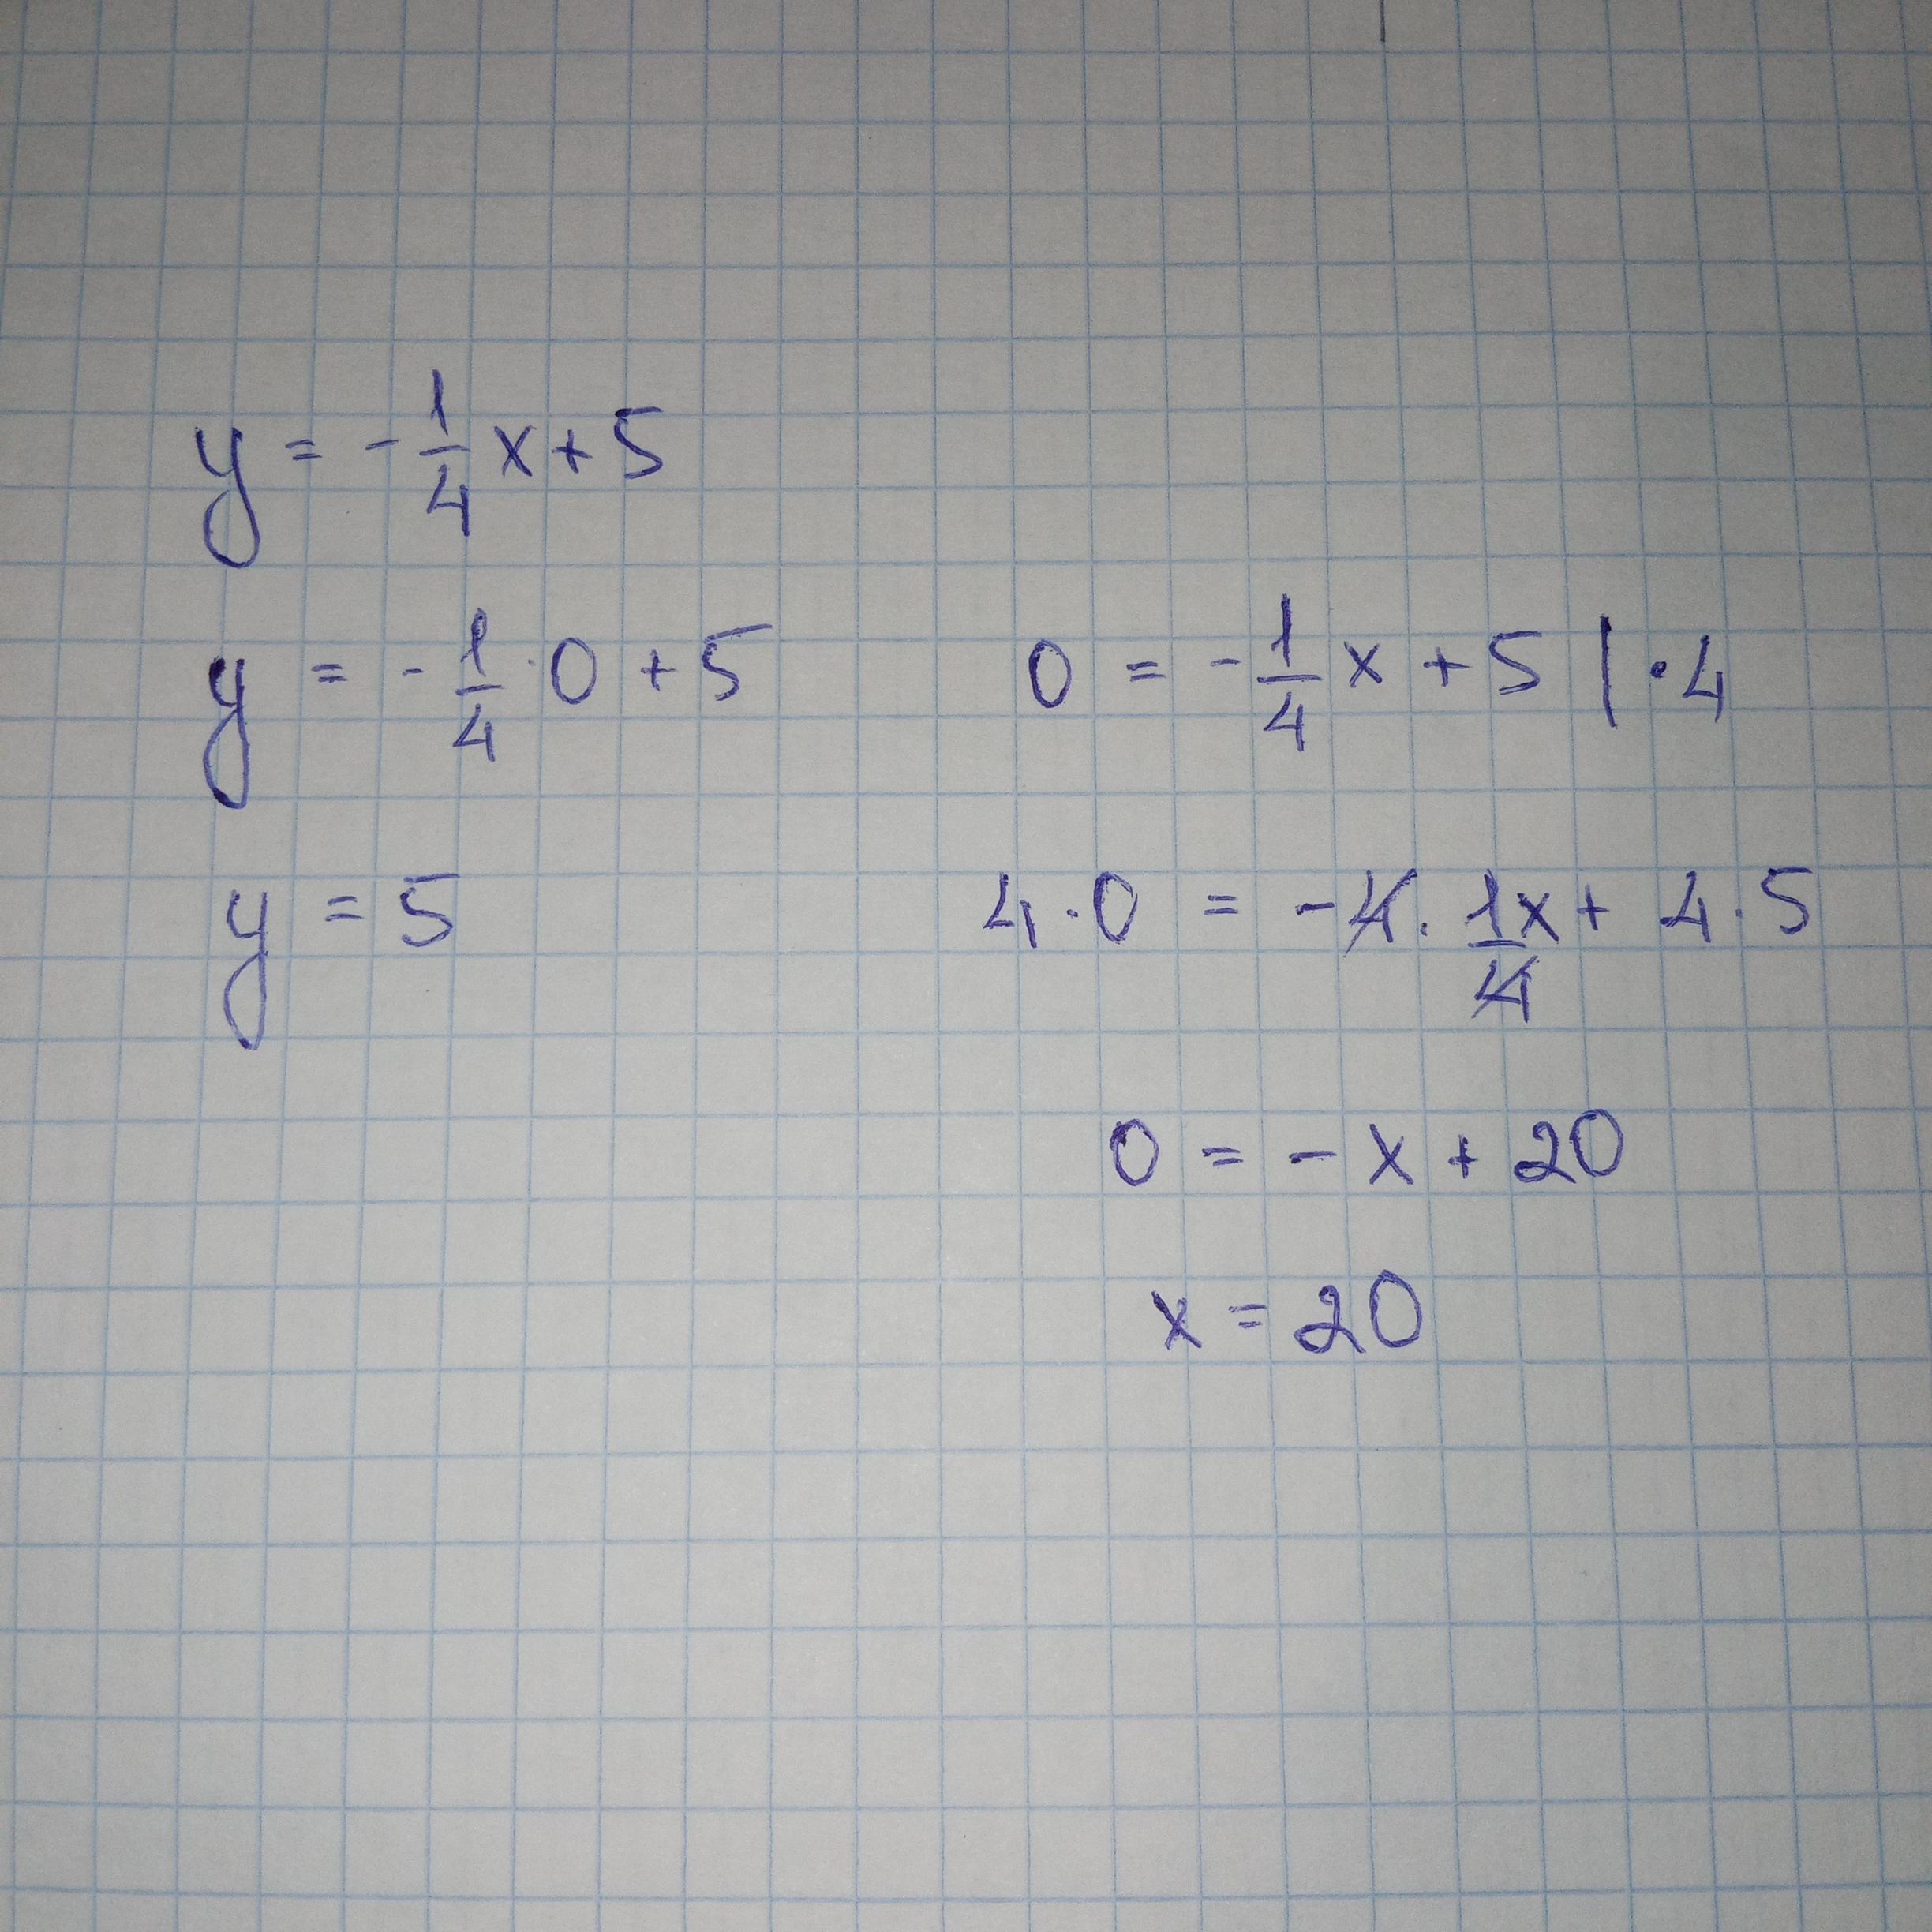 y = -1/4 x + 5
y = -1/4 · 0 + 5
y = 5
0 = -1/4 x + 5 | · 4
4 · 0 = -4 · 1/4 x + 4 · 5
0 = - x + 20
x = 20